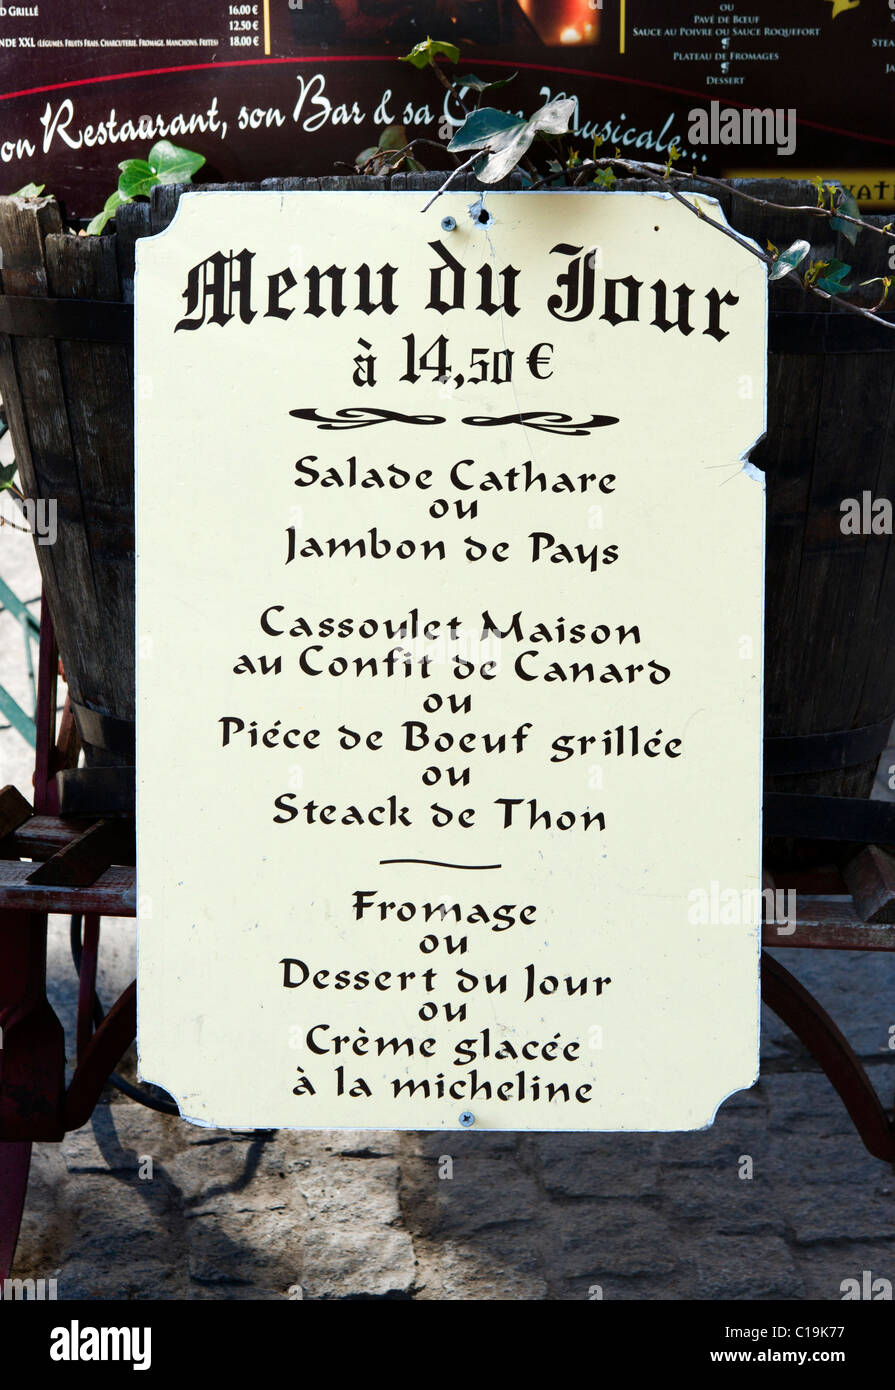 D GRILLÉ 16.00 €
12.50 €
NDE XXL (LÉGUMES, FRUITS FRAIS, CHARCUTERIE, FROMAGE, MANCHONS, FRITES) 18.00 €
OU
PAVÉ DE BŒUF
SAUCE AU POIVRE OU SAUCE ROQUEFORT
PLATEAU DE FROMAGES
DESSERT
STEA
JA
on Restaurant, son Bar & sa Musicale...
VAT
Menu du Jour
à 14,50 €
Salade Cathare
ou
Jambon de Pays
Cassoulet Maison
au Confit de Canard
ou
Piéce de Boeuf grillée
ou
Steack de Thon
Fromage
ou
Dessert du Jour
ou
Crème glacée
à la micheline
alamy
Image ID: C19K77
www.alamy.com